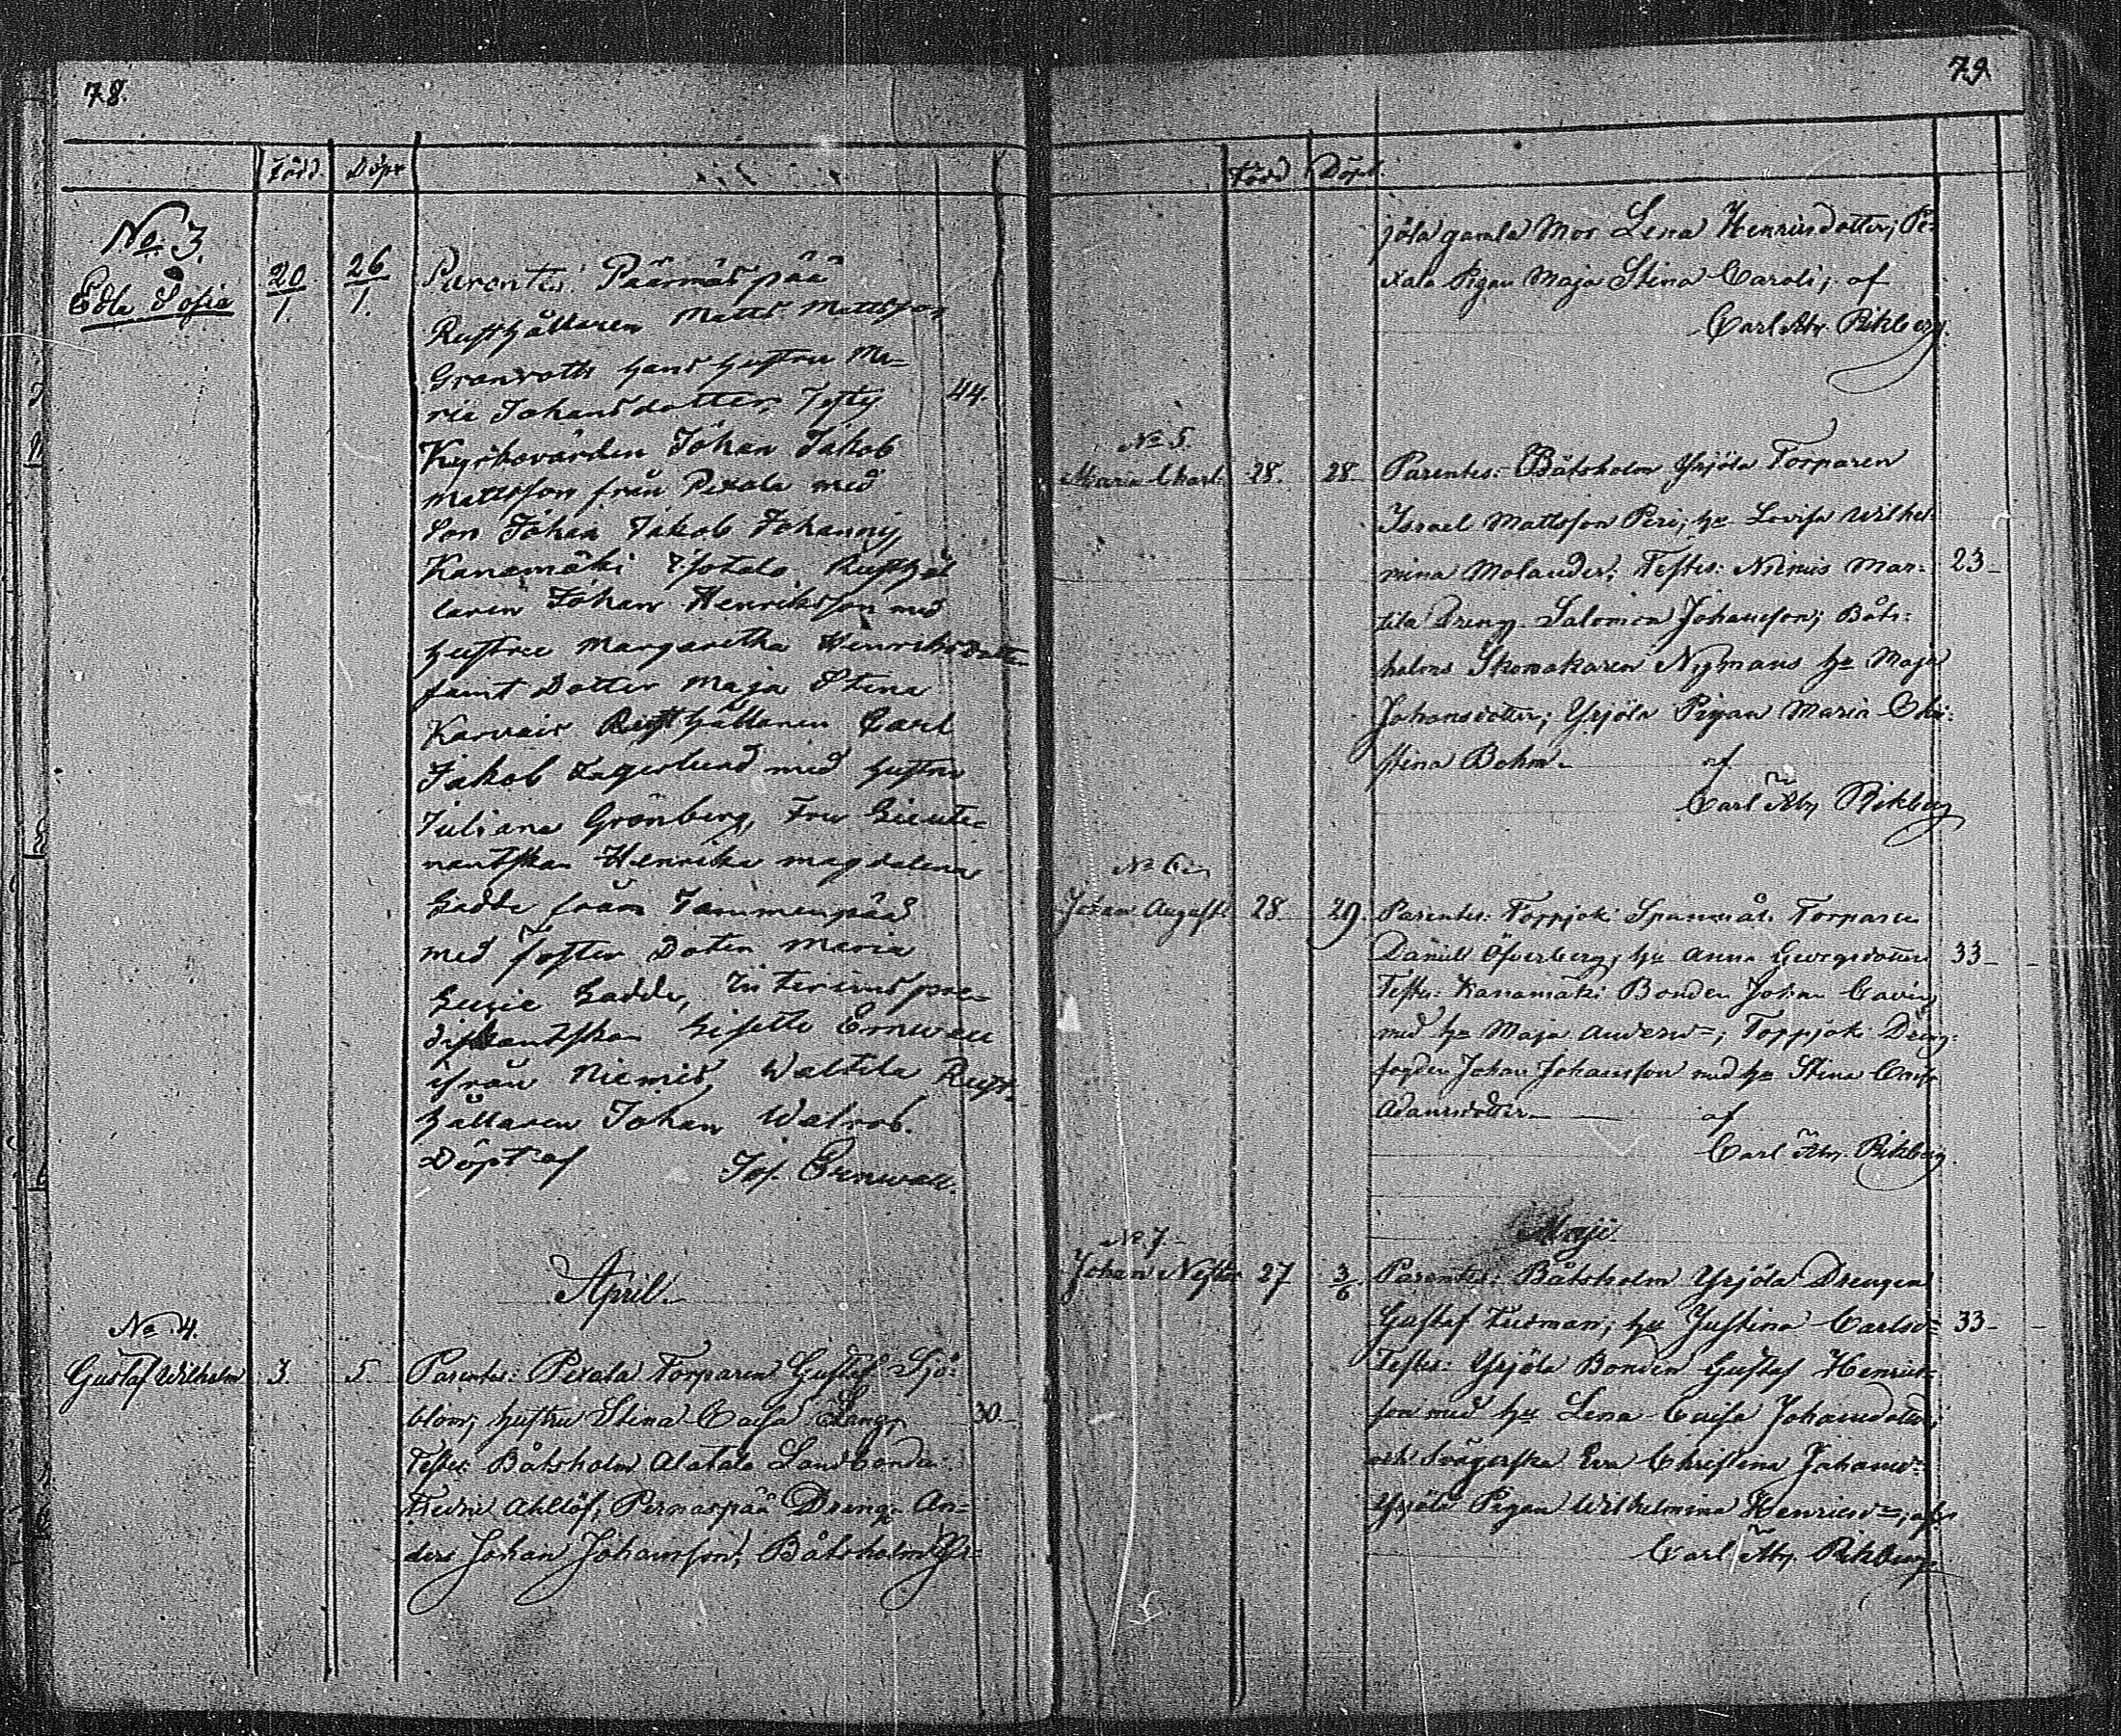 78.
Född. Döpt
No. 3.
Edla Sofia 20/1. 26/1. Parentes: Päärnäspää
Rusthållaren Matts Mattsson
Grönroth hans hustru Ma-
ria Johansdotter, Testes 44.
Kyrkovärden Johan Jakob
Mattsson från Pixala med
Son Johan Jakob Johanni,
Kanamäki Isotalo Rusthål
laren Johan Henriksson med
hustru Margaretha Henriksdotter
samt Dotter Maja Stina
Karvais Rusthållaren Carl
Jakob Lagerlund med hustru
Juliana Grönberg, Fru Lieute-
nantskan Henrika Magdalena
Gadde från Tammenpää
med foster Doter Maria
Gadde, Interims pre-
dikantskan Lisette Ernwall
ifrån Niemis, Waltila Rust-
hållaren Johan Walros.
Döpt af Jos. Ernwall.
April.
No. 4.
Gustaf Wilhelm 3. 5. Parentes: Pixala Torparen Gustaf Sjö-
blom; hustru Stina Caisa Lang, 30-
Testes: Båtsholm Alatalo Landbonde
Fredric Ahllöf; Pernaspää Dreng. An-
ders Johan Johansson; Båtsholm Yr-
79.
Född Döpt.
jölä gamla Mor Lena Henricsdotter; Pi-
xala Pigan Maja Stina Caroli; af
Carl Abr. Rikberg.
No 5.
Maria Charl. 28. 28 Parentes: Båtsholm Yrjölä Torparen
Israel Mattsson Peri, hu Lovisa Wilhel-
mina Molander; Testes: Niemis Mar- 23-
tila Dreng Salomon Johansson; Båts-
holms Skomakaren Nymans hu Maja
Johansdotter; Yrjölä Pigan Maria Chri-
stina Bohm. af
Carl Abr. Rikberg
No 6.
Johan August 28. 29. Parentes: Toppjoki Torparen
Daniel Öfverberg; hu Anna Georgsdotter 33-
Testes: Kanamäki Bonden Johan
med hu Maja Andersd=; Toppjoki Dreng-
fogden Johan Johansson med hu Stina Caisa
Adamsdotter. af
Carl Abr. Rikberg.
Maji
No. 7.
Johan Nestor 27 3/6. Parentes: Båtsholm Yrjölä Drengen
Gustaf Tudman; hu Justina Carlsd= 33-
Testes: Yrjölä Bonden Gustaf Henrics-
son med hu Lena Caisa Johansdotter;
och Svägerska Eva Christina Johansd=
Yrjölä Pigan Wilhelmina Henricsd=; af
Carl Abr. Rikberg